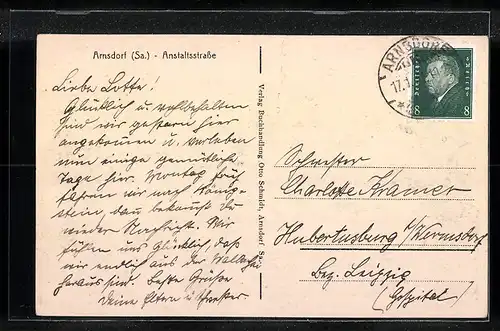 Arnsdorf (Sa.) - Anstaltsstraße
Liebe Lotte!
Glücklich u. wohlbehalten
sind wir gestern hier
angekommen u. verleben
nun einige gemütliche
Tage hier. Montag früh
fahren wir nach König-
stein, dann bekommst Du
wieder Nachricht. Wir
fühlen uns glücklich, daß
wir endlich aus der
heraus sind. Beste Grüße
Deine Eltern u.
Verlag Buchhandlung Otto Schmidt, Arnsdorf Sa.
ARNSDORF
17.
Deutsches Reich
8 8
Schwester
Charlotte Kramer
Hubertusburg/Wermsdorf
Bez. Leipzig
(Hospital)